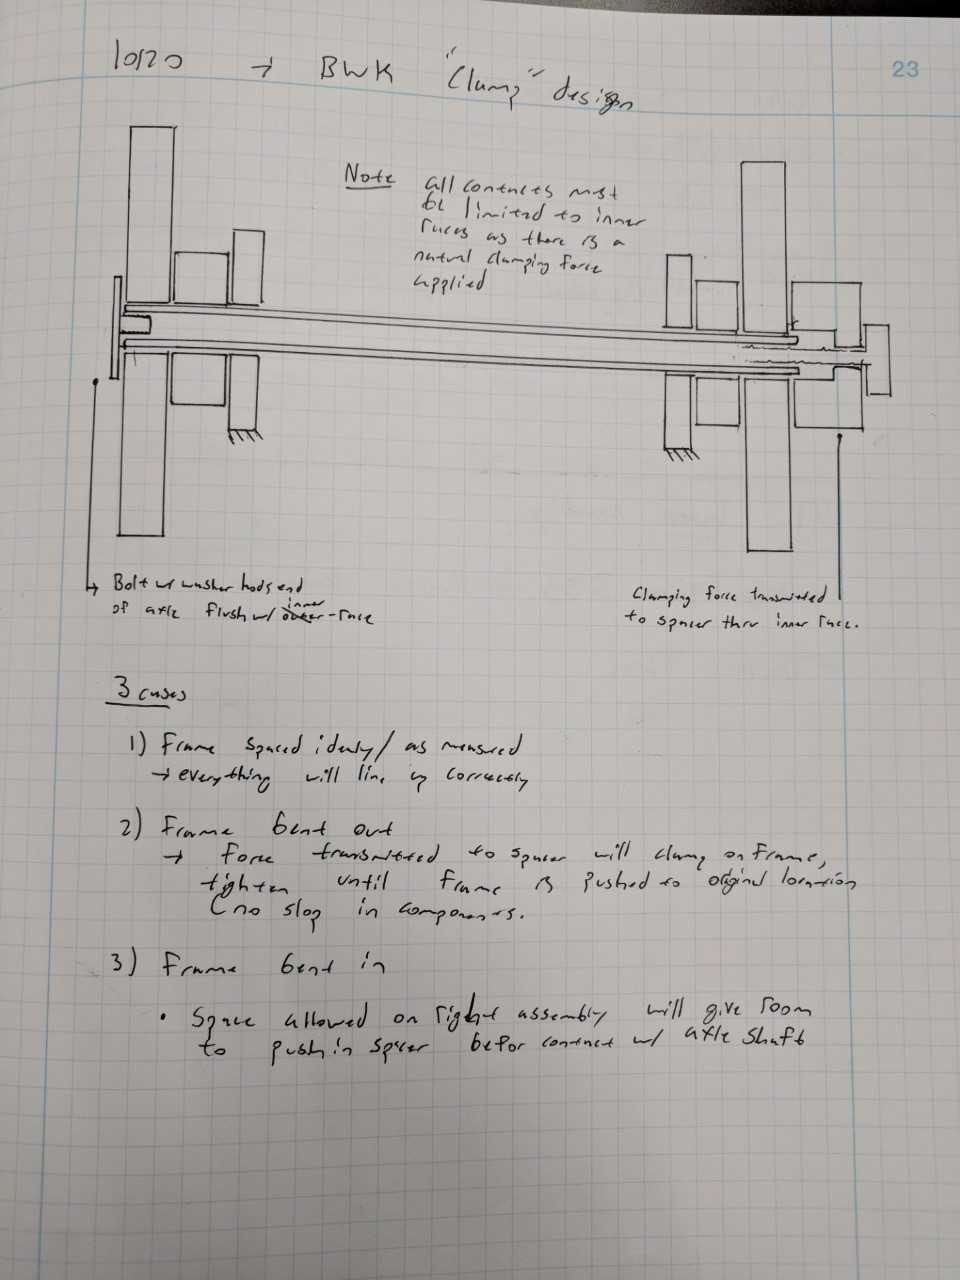 10/20 → BWK "Clamp" design
23
Note all contacts must
be limited to inner
races as there is a
natural clamping force
applied
→ Bolt w/ washer holds end
of axle flush w/ outer inner-race
Clamping force transmitted
to spacer thru inner race.
3 cases
1) Frame spaced idealy / as measured
→ everything will line up correctly
2) Frame bent out
→ Force transmitted to spacer will clamp on frame,
tighten until frame is pushed to original location
(no slop in components.
3) Frame bent in
• Space allowed on right assembly will give room
to push in spacer befor contact w/ axle shaft